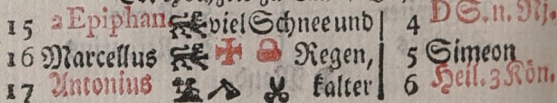 15 2 Epiphan. viel Schnee und 4 D S. n. Nj.
16 Marcellus Regen, 5 Simeon
17 Antonius kalter 6 Heil. 3 Kön.